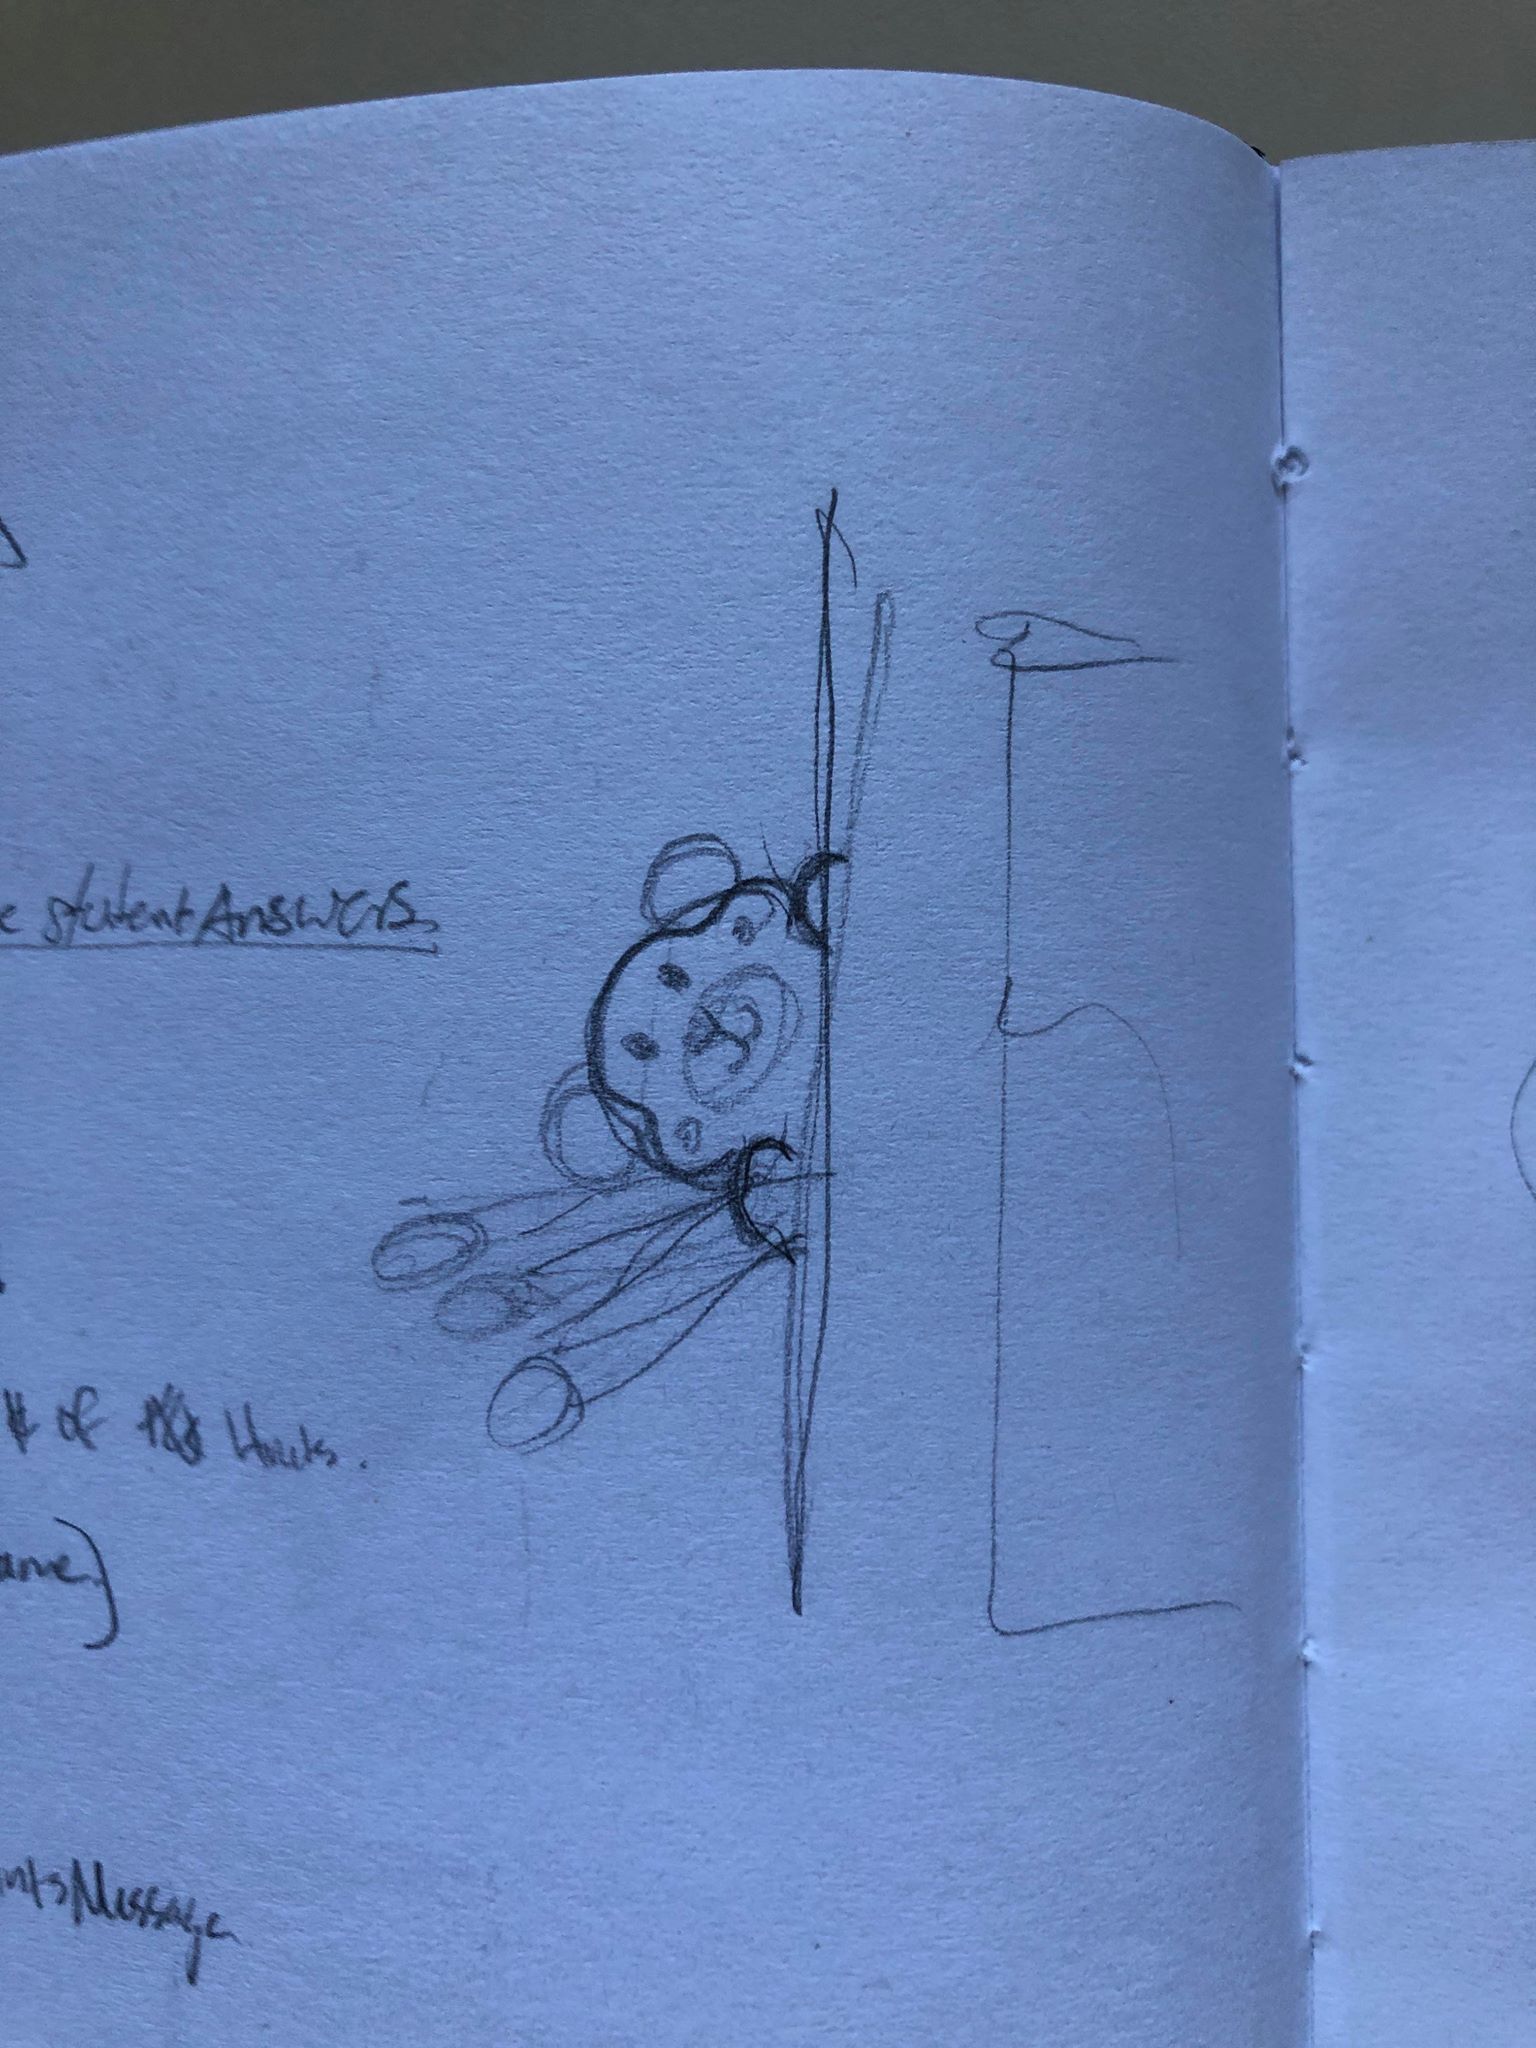 e studentAnswers
# of Hints.
ame)
ntsMessage